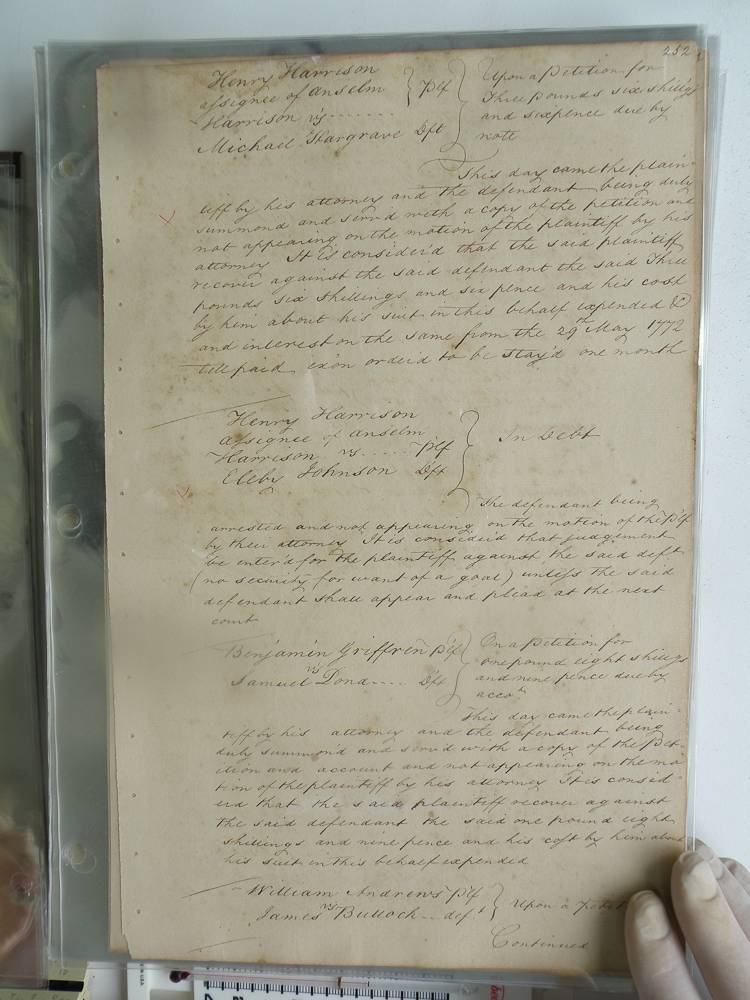 252
Henry Harrison
assignee of Anselm
Harrison vs ....... Plf
Michael Hargrave Dft
Upon a Petition for
Three pounds six shillgs
and sixpence due by
note
This day came the plain-
tiff by his attorney and the defendant being duly
summond and serv'd with a copy of the petition and
not appearing on the motion of the plaintiff by his
attorney It is consider'd that the said plaintiff
recover against the said defendant the said Three
pounds six shillings and six pence and his cost
by him about his suit in this behalf expended &c
and interest on the same from the 29th May 1772
till paid exōn order'd to be stay'd one month
Henry Harrison
assignee of Anselm
Harrison vs ...... Plf
Eleby Johnson Dft
In Debt
The defendant being
arrested and not appearing on the motion of the Plf
by their attorney It is consider'd that judgement
be enter'd for the plaintiff against the said deft
(no security for want of a goal) unless the said
defendant shall appear and plead at the next
court
Benjamin Griffren Plf
vs
Samuel Dond .... Dft
On a Petition for
one pound eight shillgs
and nine pence due by
accot
This day came the plain-
tiff by his attorney and the defendant being
duly summon'd and serv'd with a copy of the Pet-
ition and account and not appearing on the mo
tion of the plaintiff by his attorney It is consid-
erd that the said plaintiff recover against
the said defendant the said one pound eight
shillings and nine pence and his cost by him about
his suit in this behalf expended
William Andrews Plf
vs
James Bullock ... deft
Upon a
Continued